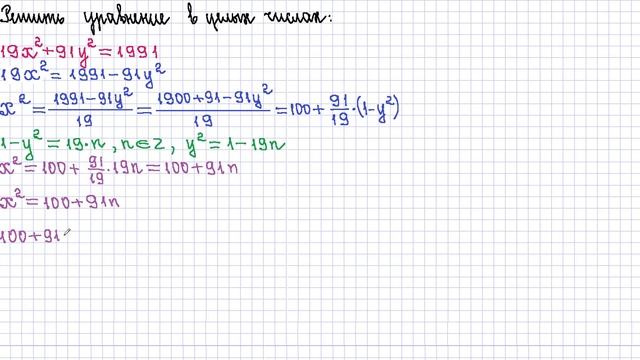 Решить уравнение в целых числах:
19x²+91y²=1991
19x²=1991-91y²
x²=\frac{1991-91y²}{19}=\frac{1900+91-91y²}{19}=100+\frac{91}{19}·(1-y²)
1-y²=19·n, n∈Z, y²=1-19n
x²=100+\frac{91}{19}·19n=100+91n
x²=100+91n
100+91